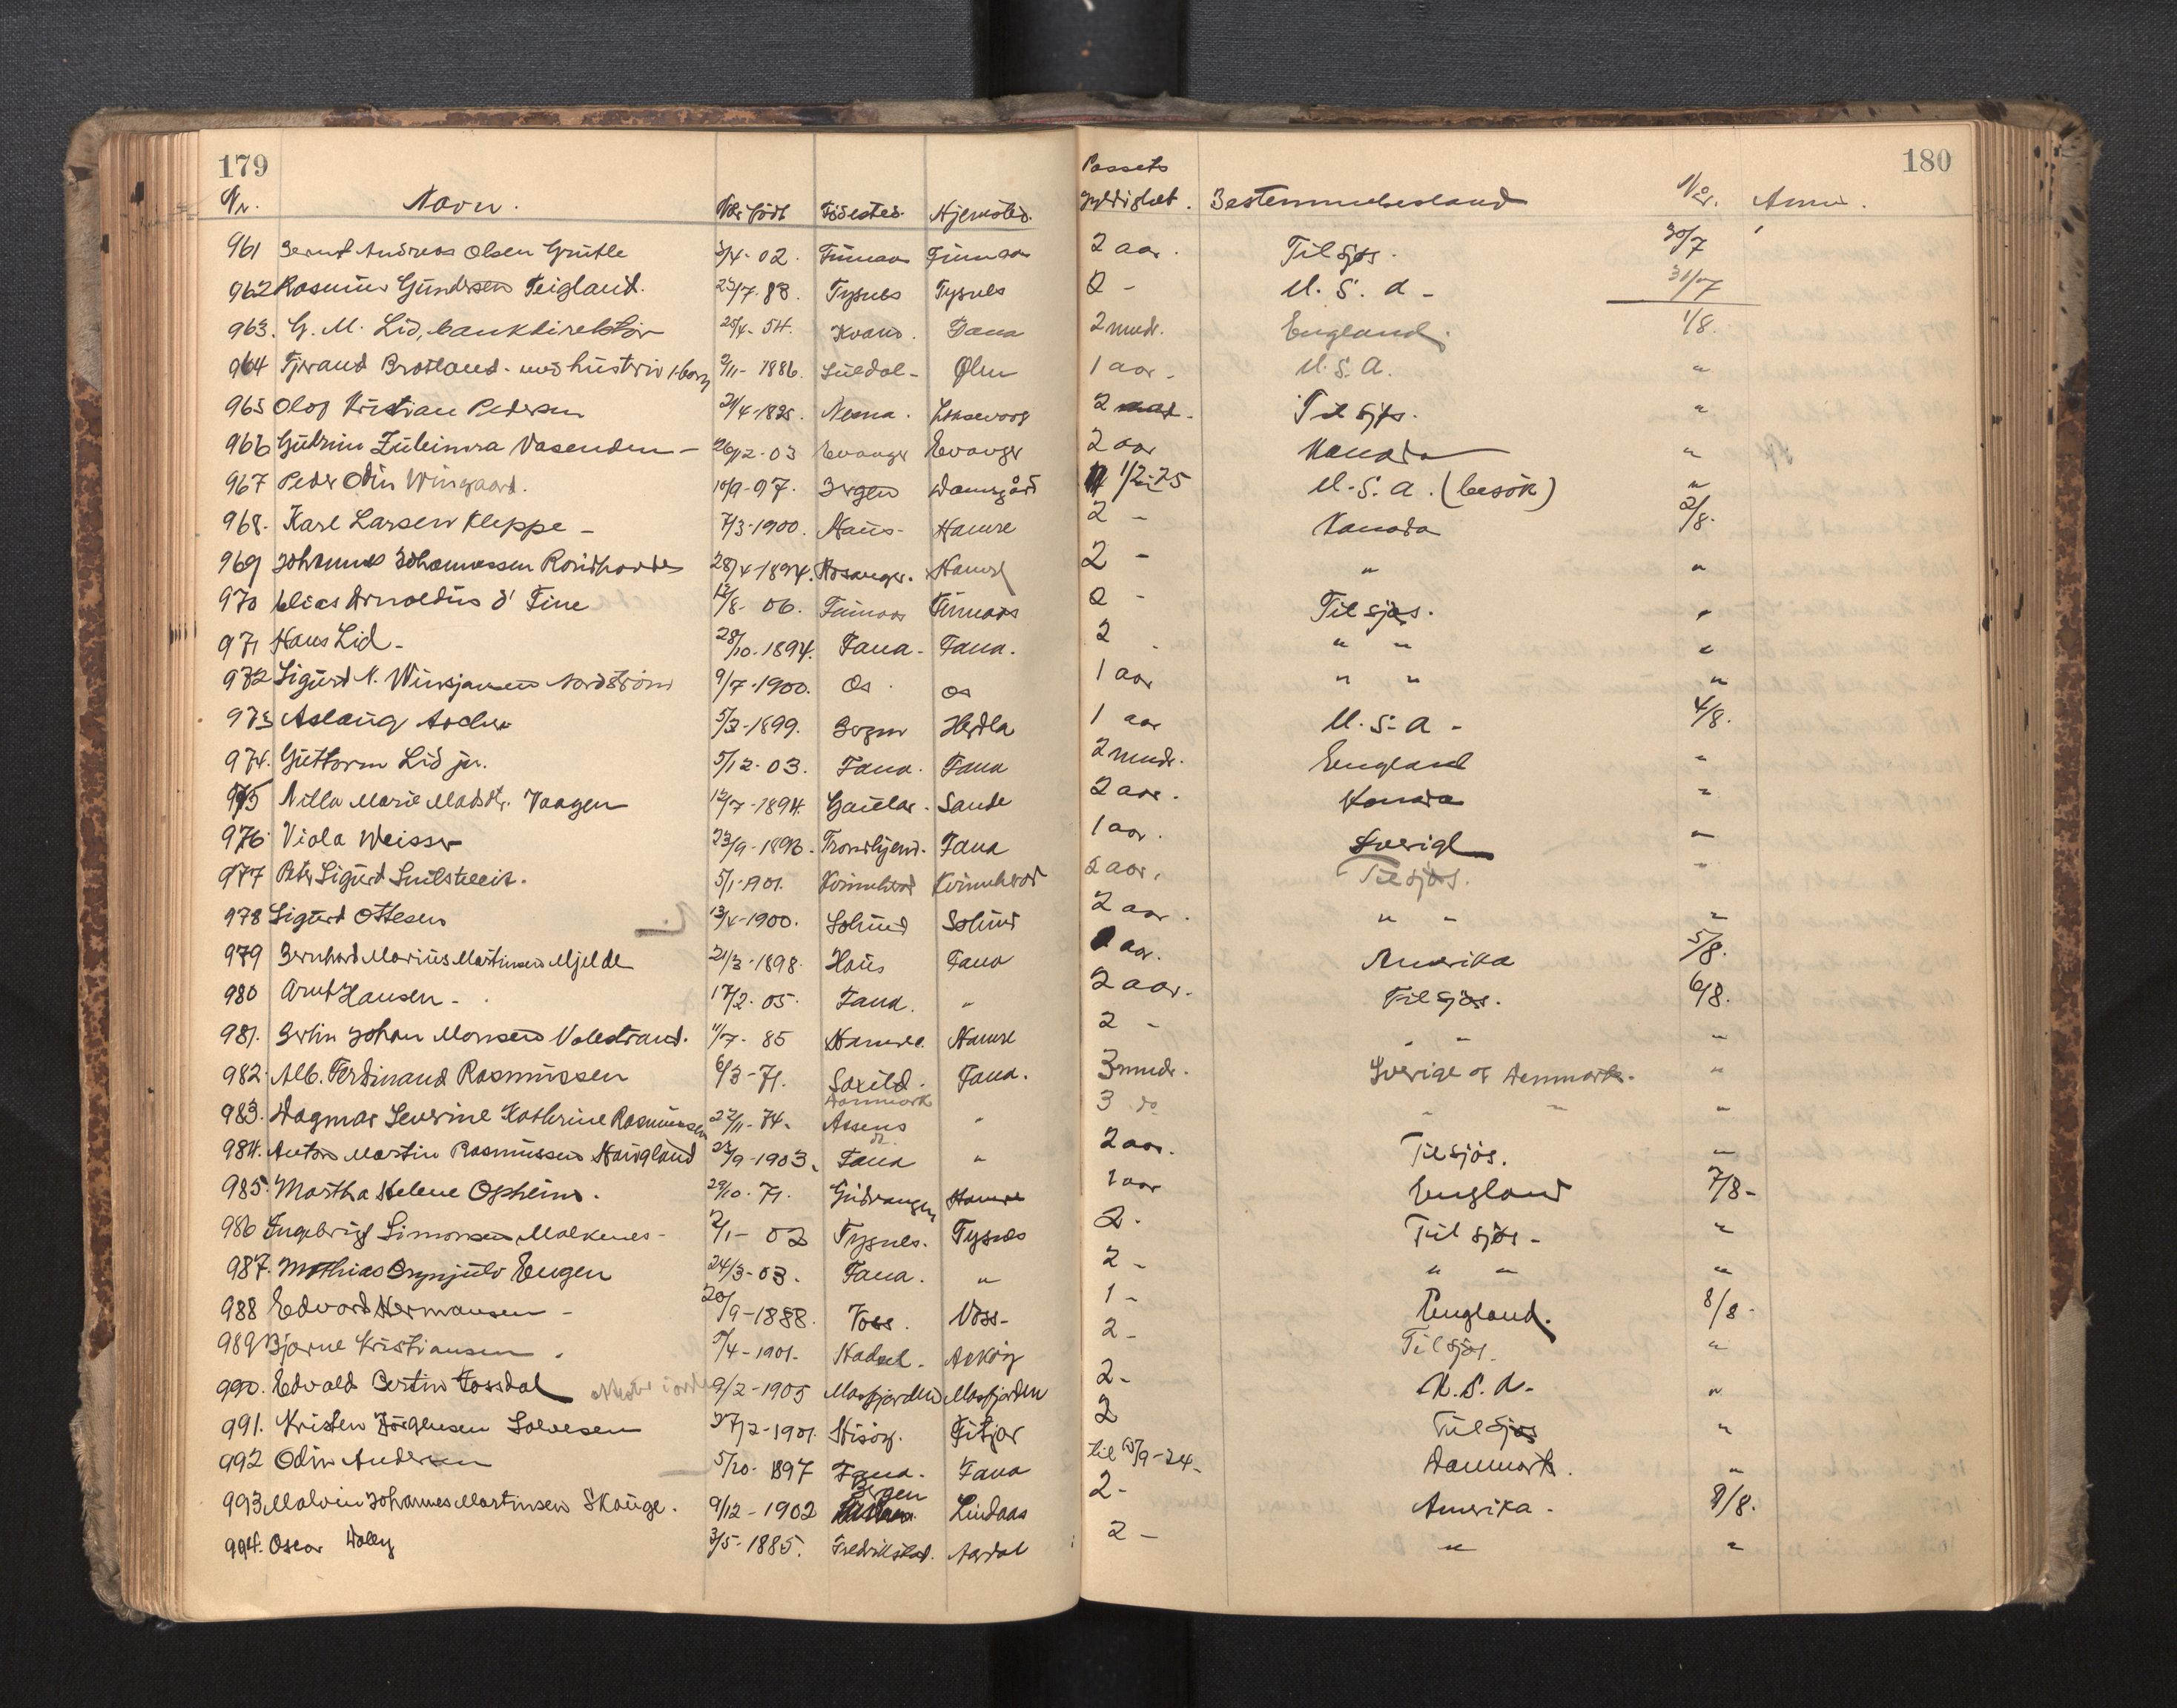 179 180
Nr. Navn. Når födt Födested. Hjemsted. Passets gyldighet. Bestemmelsesland Når. Anm.
961 Bernt Andreas Olsen Grutle 3/4-02. Finnaas Finnaas 2 aar. Til sjøs. 30/7
962 Rasmus Gundersen Teigland. 23/7.88. Tysnes Tysnes 2 - U.S.A - 31/7
963. G. M. Lid, bankdirektör 25/4-54. Kvam. Fana 2 mndr. England. 1/8.
964 Tjerand Bratland. med hustru 1 barn 2/11-1886. Suldal- Ølen 1 aar. U.S.A. "
965 Olof Kristian Pedersen 21/4-1825. 2 Til sjøs. "
966 Gudrun Vasenden - 26/12-03 Evanger Evanger 2 aar Kanada "
967 Peder Odin Wingaard. 10/9-97. Bergen Damsgård 1/2-25 U.S.A. (besök) "
968. Karl Larsen Kleppe - 7/3-1900. Haus- Hamre 2 - Kanada 2/8.
969 Johannes Johannessen Rondhovde 28/4-1894. Hosanger. Hamre 2 - " "
970 Elias Arnoldus d' Fine 12/8-06. Finnaas Finnaas 2 - Til sjøs. "
971 Hans Lid- 28/10-1894. Fana- Fana. 2 " " "
972 Sigurd N. Nordström 9/7-1900. Os. Os 1 aar " " "
973 Aslaug 5/3-1899. Bergen Herdla 1 aar U.S.A - 4/8.
974. Guttorm Lid jr. 5/12-03. Fana. Fana 2 mndr. England "
975 Nilla Marie Madsdtr. Vaagen 12/7-1894. Gaular. Sande 2 aar. Kanada "
976. Viola Weisser 23/9-1893. Trondhjem. Fana 1 aar. Sverige "
977 Peter Sigurd 5/1-1901. Kvinnherad Kvinnherad 2 aar. Til sjøs. "
978 Sigurd Ottesen 13/4-1900. Solund Solund 2 aar. " " "
979 Bernhard Marius Martinsen Mjelde 21/3-1898. Haus Fana aar. Amerika 5/8.
980 Arnt Hansen- 17/2-05. Fana. " 2 aar. Til sjøs. 6/8.
981. Johan Monsen Valestrand. 11/7-85 Hamre. Hamre 2 - " " "
982. Alb. Ferdinand Rasmussen 6/3-71. Saxild. Danmark Fana. 3 mndr. Sverige og Danmark. "
983. Dagmar Severine Kathrine Rasmussen 22/11-74. Assens do " 3 do " " "
984. Anton Martin Rasmussen Haugland 23/9-1903. Fana " 2 aar. Til sjøs. "
985. Martha Helene Opheim. 29/10-71. Gudvangen Hamre 1 aar England 7/8-
986 Ingebrigt Simonsen Malkenes- 2/1-02 Tysnes. Tysnes 2. Til sjøs- "
987. Mathias Brynjulv Eugen 24/3-03. Fana. " 2 - " " "
988 Edvard Hermansen - 20/9-1888. Voss. Voss- 1 - England. 8/8-
989 Bjarne Kristiansen. 5/4-1901- Hadsel. Askøy 2 - Til sjøs. "
990. Edvald Bertin Fossdal 9/2-1905 Masfjorden Masfjorden 2 - U.S.A- "
991. Kristen Solvesen 27/2-1901. Fitjar 2 Til sjøs "
992 Odin Andersen 5/10-1897 Fana. Fana til 15/9-24. Danmark. "
993. Malvin Johannes Martinsen Skauge. 9/12-1902 Bergen Lindaas 2 - Amerika. 9/8.
994. Oscar 3/5-1885. Fredrikstad. Aardal 2 - " "